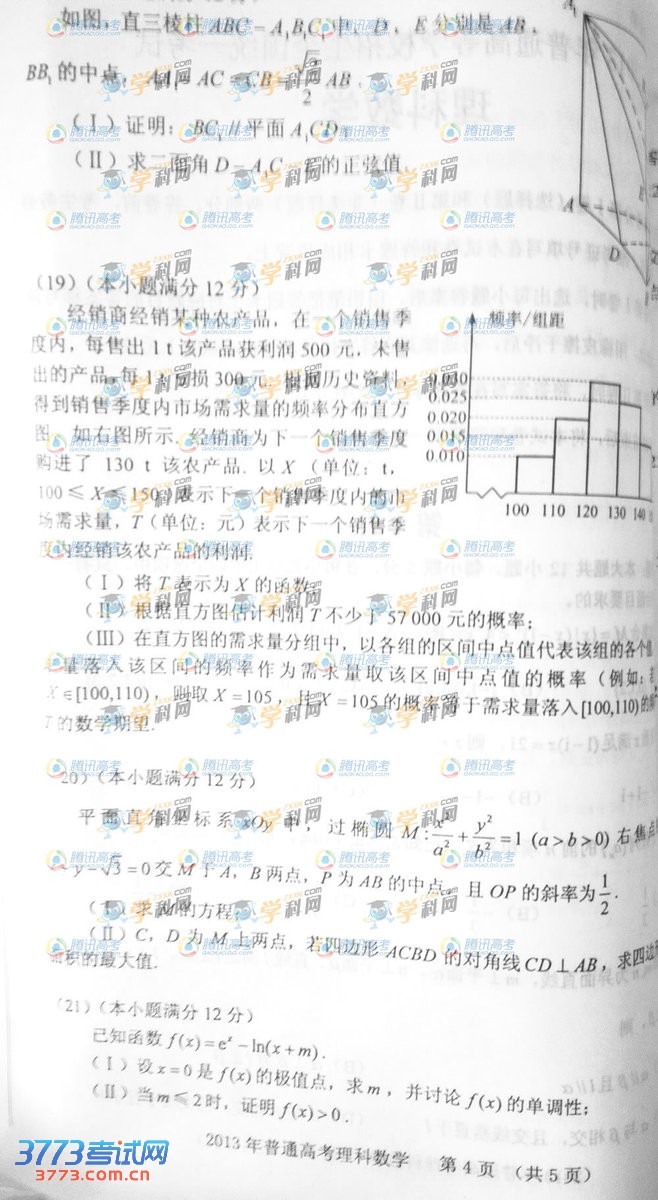 如图,直三棱柱 ABC-A₁B₁C₁中,D,E分别是AB,
BB₁的中点,AA₁=AC=CB=√2/2 AB.
(Ⅰ)证明:BC₁//平面A₁CD;
(Ⅱ)求二面角D-A₁C-E的正弦值.
A₁
A
D
E
(19)(本小题满分12分)
经销商经销某种农产品,在一个销售季
度内,每售出1 t该产品获利润500元,未售
出的产品,每1 t亏损300元.根据历史资料,
得到销售季度内市场需求量的频率分布直方
图,如右图所示.经销商为下一个销售季度
购进了 130 t 该农产品.以X(单位:t,
100≤X≤150)表示下一个销售季度内的市
场需求量,T(单位:元)表示下一个销售季
度内经销该农产品的利润.
频率/组距
0.030
0.025
0.020
0.015
0.010
100 110 120 130 140
(Ⅰ)将T表示为X的函数;
(Ⅱ)根据直方图估计利润T不少于57 000元的概率;
(Ⅲ)在直方图的需求量分组中,以各组的区间中点值代表该组的各个值
量落入该区间的频率作为需求量取该区间中点值的概率(例如:若
X∈[100,110),则取X=105,且X=105的概率等于需求量落入[100,110)的
T的数学期望.
20)(本小题满分12分)
平面直角坐标系xOy中,过椭圆M:x²/a²+y²/b²=1 (a>b>0)右焦点
-y-√3=0交M于A,B两点,P为AB的中点,且OP的斜率为1/2.
(Ⅰ)求M的方程;
(Ⅱ)C,D为M上两点,若四边形ACBD的对角线CD⊥AB,求四边
面积的最大值.
(21)(本小题满分12分)
已知函数f(x)=eˣ-ln(x+m).
(Ⅰ)设x=0是f(x)的极值点,求m,并讨论f(x)的单调性;
(Ⅱ)当m≤2时,证明f(x)>0.
2013年普通高考理科数学 第4页(共5页)
3773考试网
3773.com
腾讯高考
GAOKAO.QQ.COM
学科网
ZXXK.com